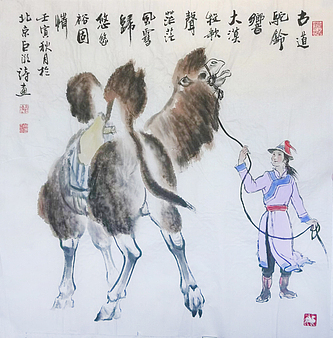 古道
駝鈴
響
大漠
牧歌
聲
茫茫
風雪
歸
悠悠
裕固
情
壬寅秋月於
北京巨滋詩畫